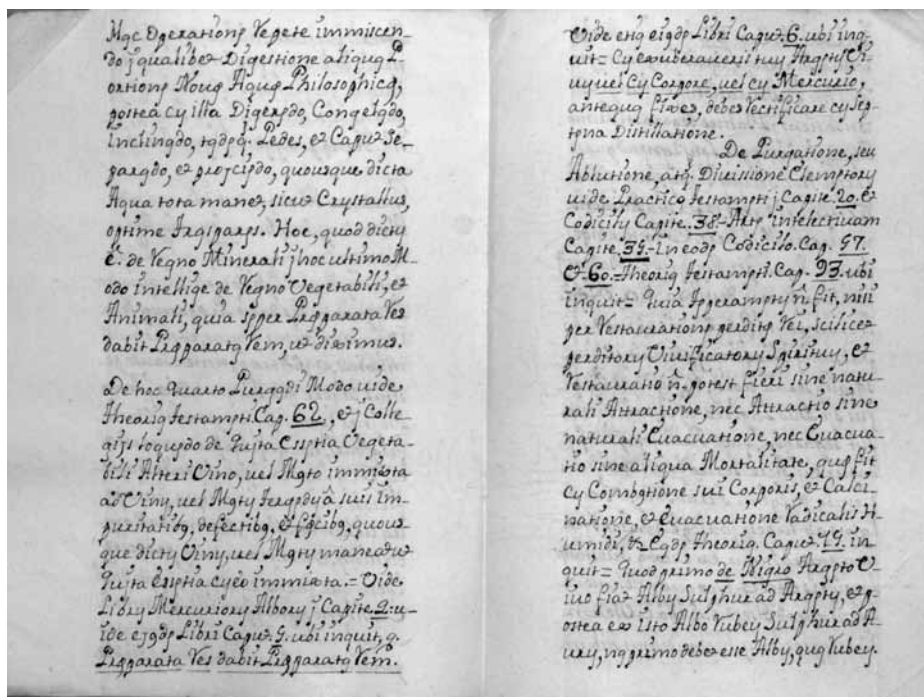 Hac Operationẽ Repete immiscen-
do ĩ qualibet Digestione aliquã P-
ortionẽ Nouę Aquę Philosophicę,
postea cũ illa Digerẽdo, Congelãdo,
inclinãdo,
Pedes, et Caput Se-
parãdo, et proijciẽdo, quousque dicta
Aqua tota manet, sicut Crystallus,
optime Trãsparẽs. Hoc, quod dictũ
ẽ. de Regno Minerali ĩ hoc ultimo M-
odo intellige de Regno Vegetabili, et
Animali, quia sẽper Pręparata Res
dabit Pręparatã Rem, ut diximus.
De hoc quarto Purgãdi Modo uide
Theoricã Testamẽti Cap. 62., et ĩ Colle-
loquẽdo de Quĩta Essẽtia Vegeta-
bili Vino, uel Mẽto immixta
ad Vinũ, uel Mẽtũ a suis im-
puritatibꝫ, defectibꝫ, et fęcibꝫ, quous-
que dictũ Vinũ, uel Mẽtũ maneat
Quĩta Essẽtia cũ eo immixta.= Vide
Librũ Mercuriorũ Alborũ ĩ Capite. 2. u-
ide Libri Caput. 5. ubi inquit, q.
Pręparata Res dabit Pręparatã Rem.
Vide Libri Caput. 6. ubi inq-
uit= Cũ exuberaueris tuũ Argẽtũ Vi-
uũ uel Cũ Corpore, uel cũ Mercurio,
antequã fixes, debes rectificare cũ Sep-
tena Distillatione.
De Purgatione, seu
Ablutione, atq. Diuisione Elemẽtorũ
uide Practicã Testamẽti ĩ Capite. 20. et
Codicilũ Capite. 38.- Artẽ intelectiuam
Capite. 35.- In eodẽ Codicilo. Cap. 57.
et 60.= Theoricã Testamẽti. Cap. 93. ubi
inquit= Quia ñ. fit, nisi
per Restaurationẽ perditę Rei, scilicet
perditorũ Viuificatorũ Spirituũ, et
Restauratio ñ. potest fieri sine natu-
rali Attractione, nec Attractio sine
naturali Euacuatione, nec Euacua-
tio sine aliqua Mortalitate, quę fit
cũ Combꝫtione sui Corporis, et Calci-
natione, et Euacuatione Radicalis H-
umidi, Theorię. Caput. 79. in-
quit= Quod primo de Nigro Argẽto V-
iuo fiat Albũ Sulphur ad Argẽtũ, et p-
ostea ex isto Albo Rubeũ Sulphur ad A-
urũ, nã primo debet esse Albũ, quã Rubeũ.